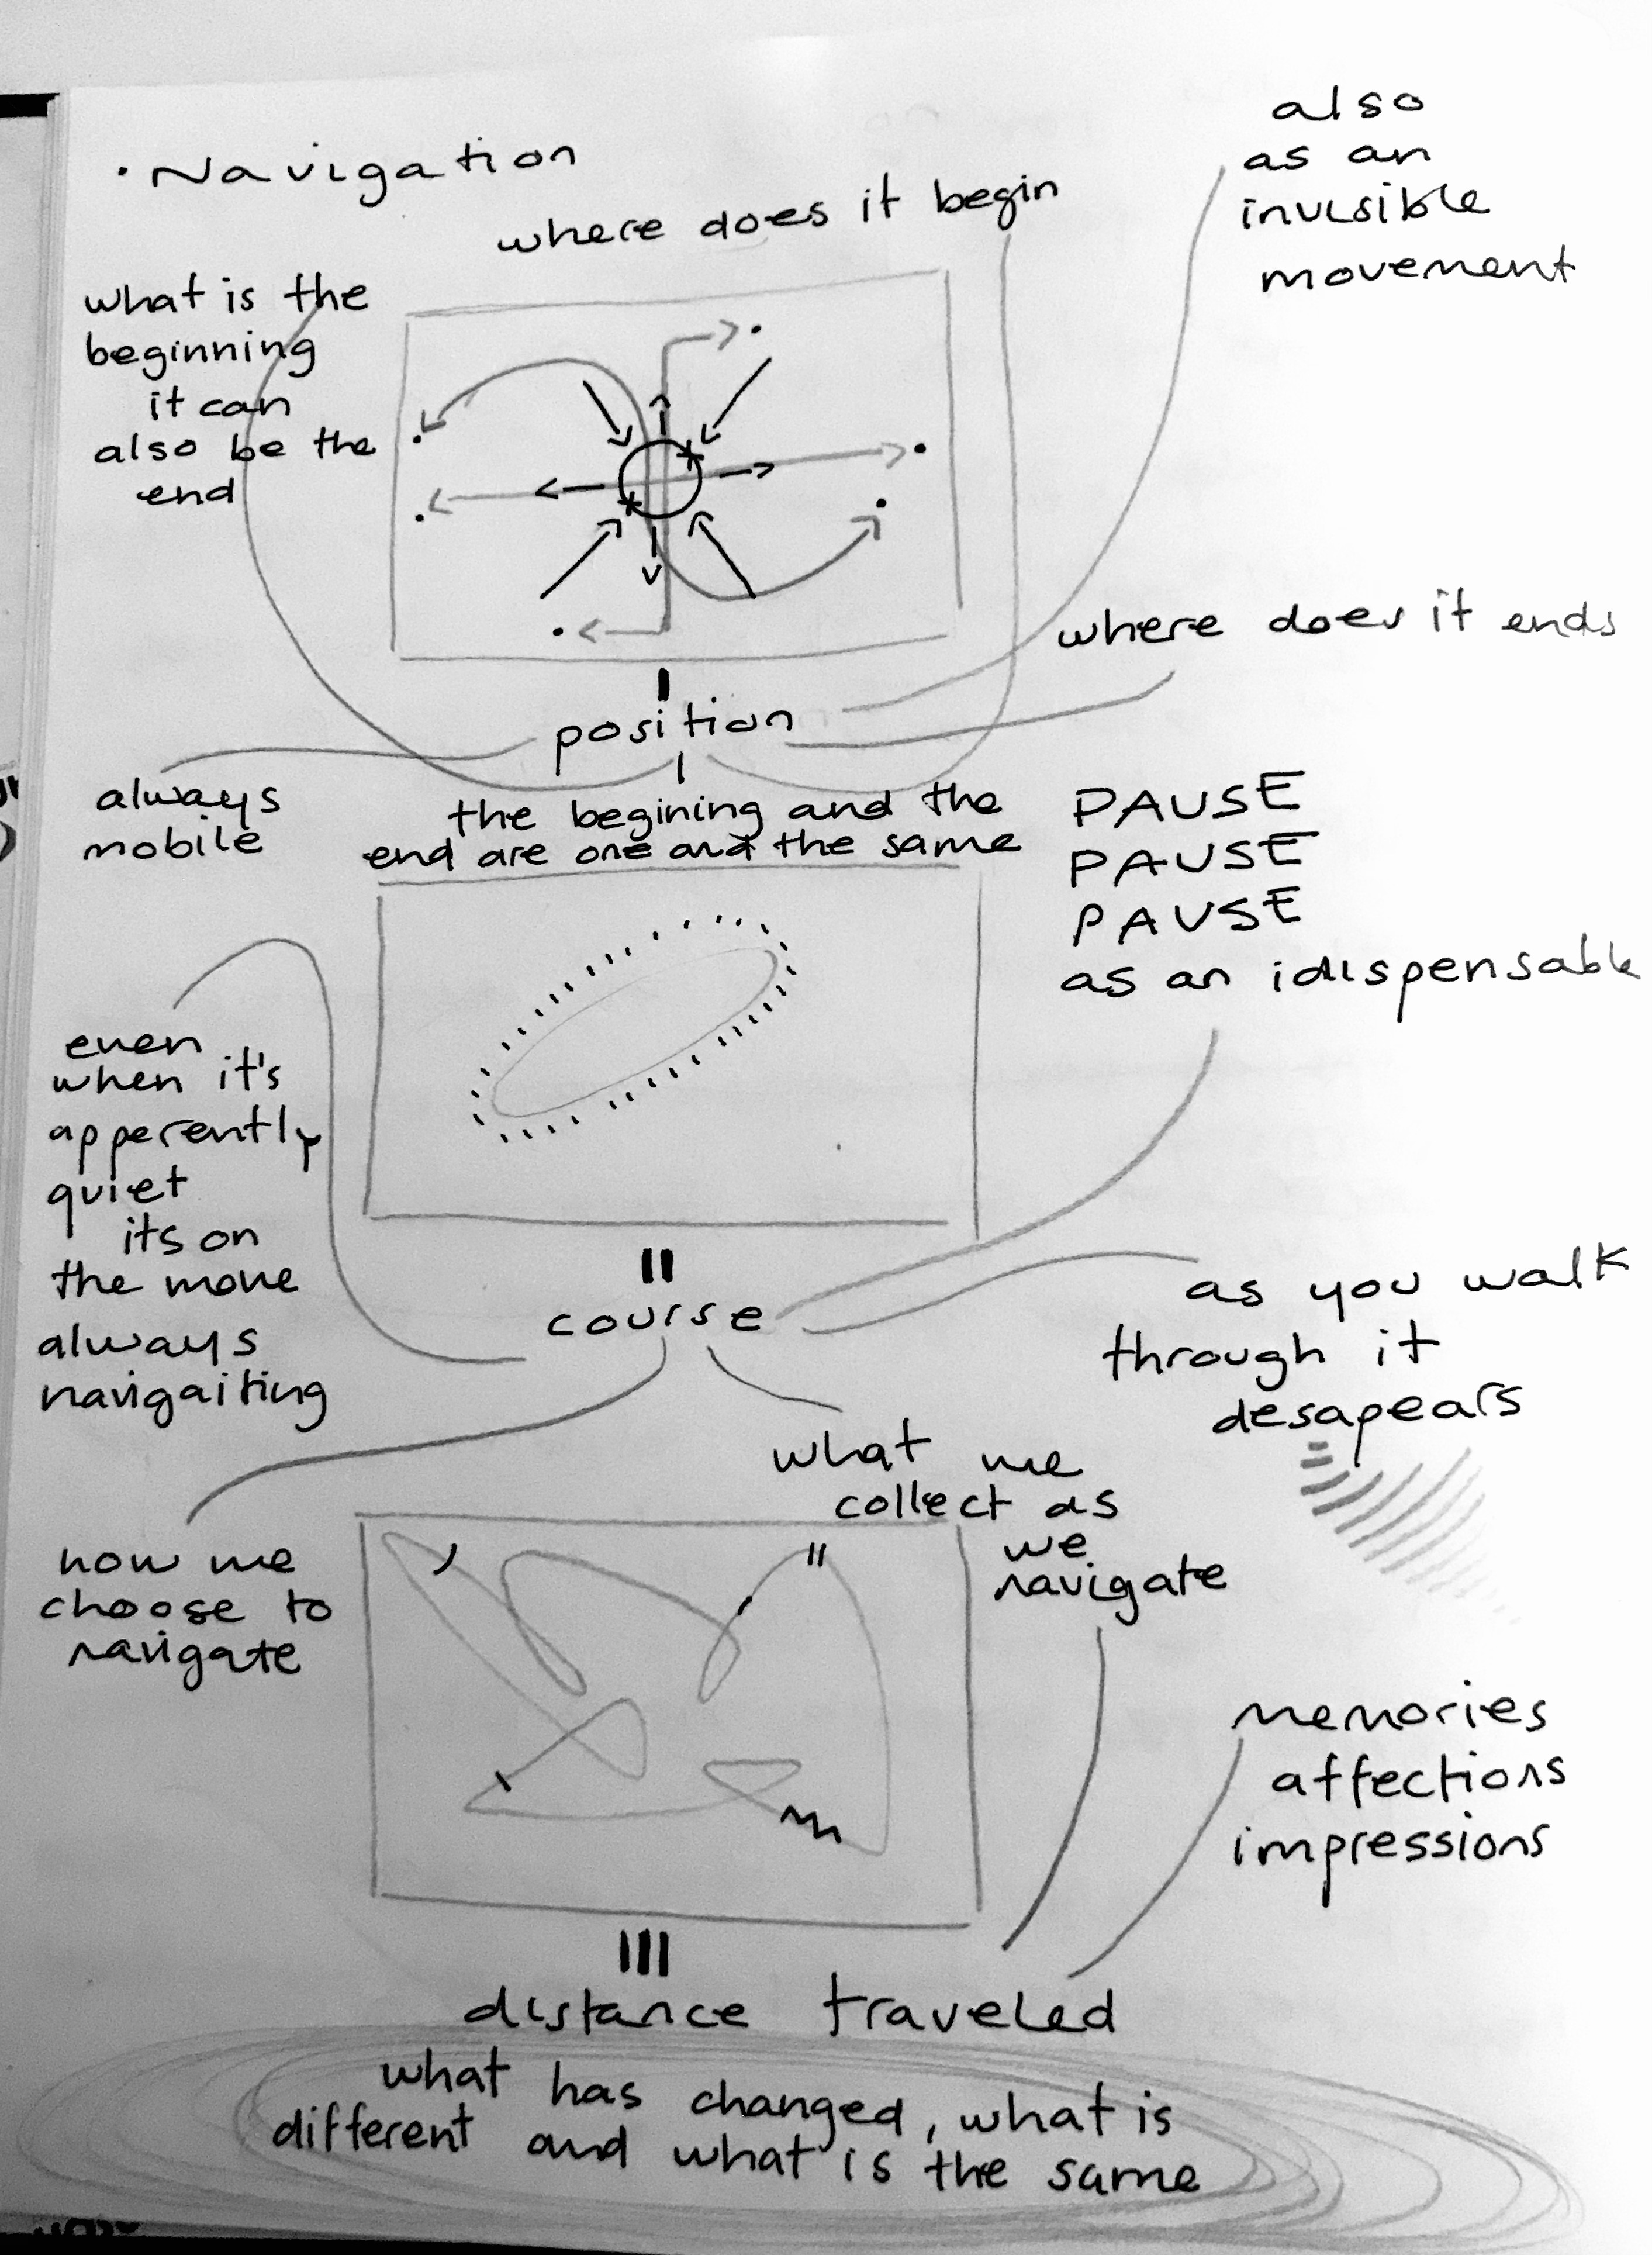 • Navigation
where does it begin
also
as an
invisible
movement
what is the
beginning
it can
also be the
end
where does it ends
I
position
always
mobile
the begining and the
end are one and the same
PAUSE
PAUSE
PAUSE
as an idispensable
even
when it's
apperently
quiet
its on
the move
always
navigaiting
II
course
as you walk
through it
desapears
what we
collect as
we
navigate
how we
choose to
navigate
memories
affections
impressions
III
distance traveled
what has changed, what is
different and what is the same